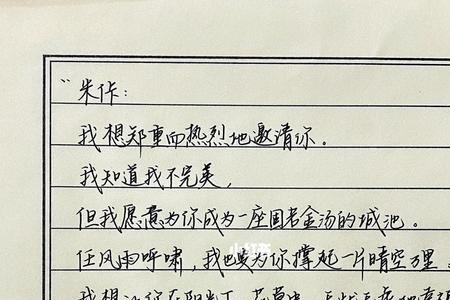 "朱佧:
我想郑重而热烈地邀请你。
我知道我不完美,
但我愿意为你成为一座固若金汤的城池。
任风雨呼啸,我也要为你撑起一片晴空万里。
小红书
我想